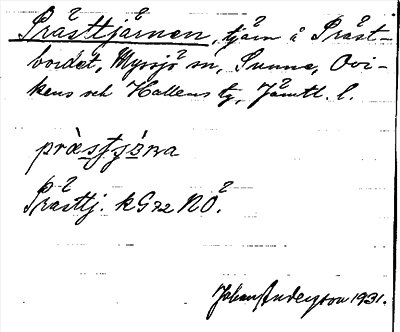 Prästtjärnen, tjärn å Präst-
bordet, Myssjö sn, Sunne, Ovi-
kens och Hallens tg, Jämtl. l.
præstjärna
Prästtj. kG 72 NO.
Johan Anderson 1931.